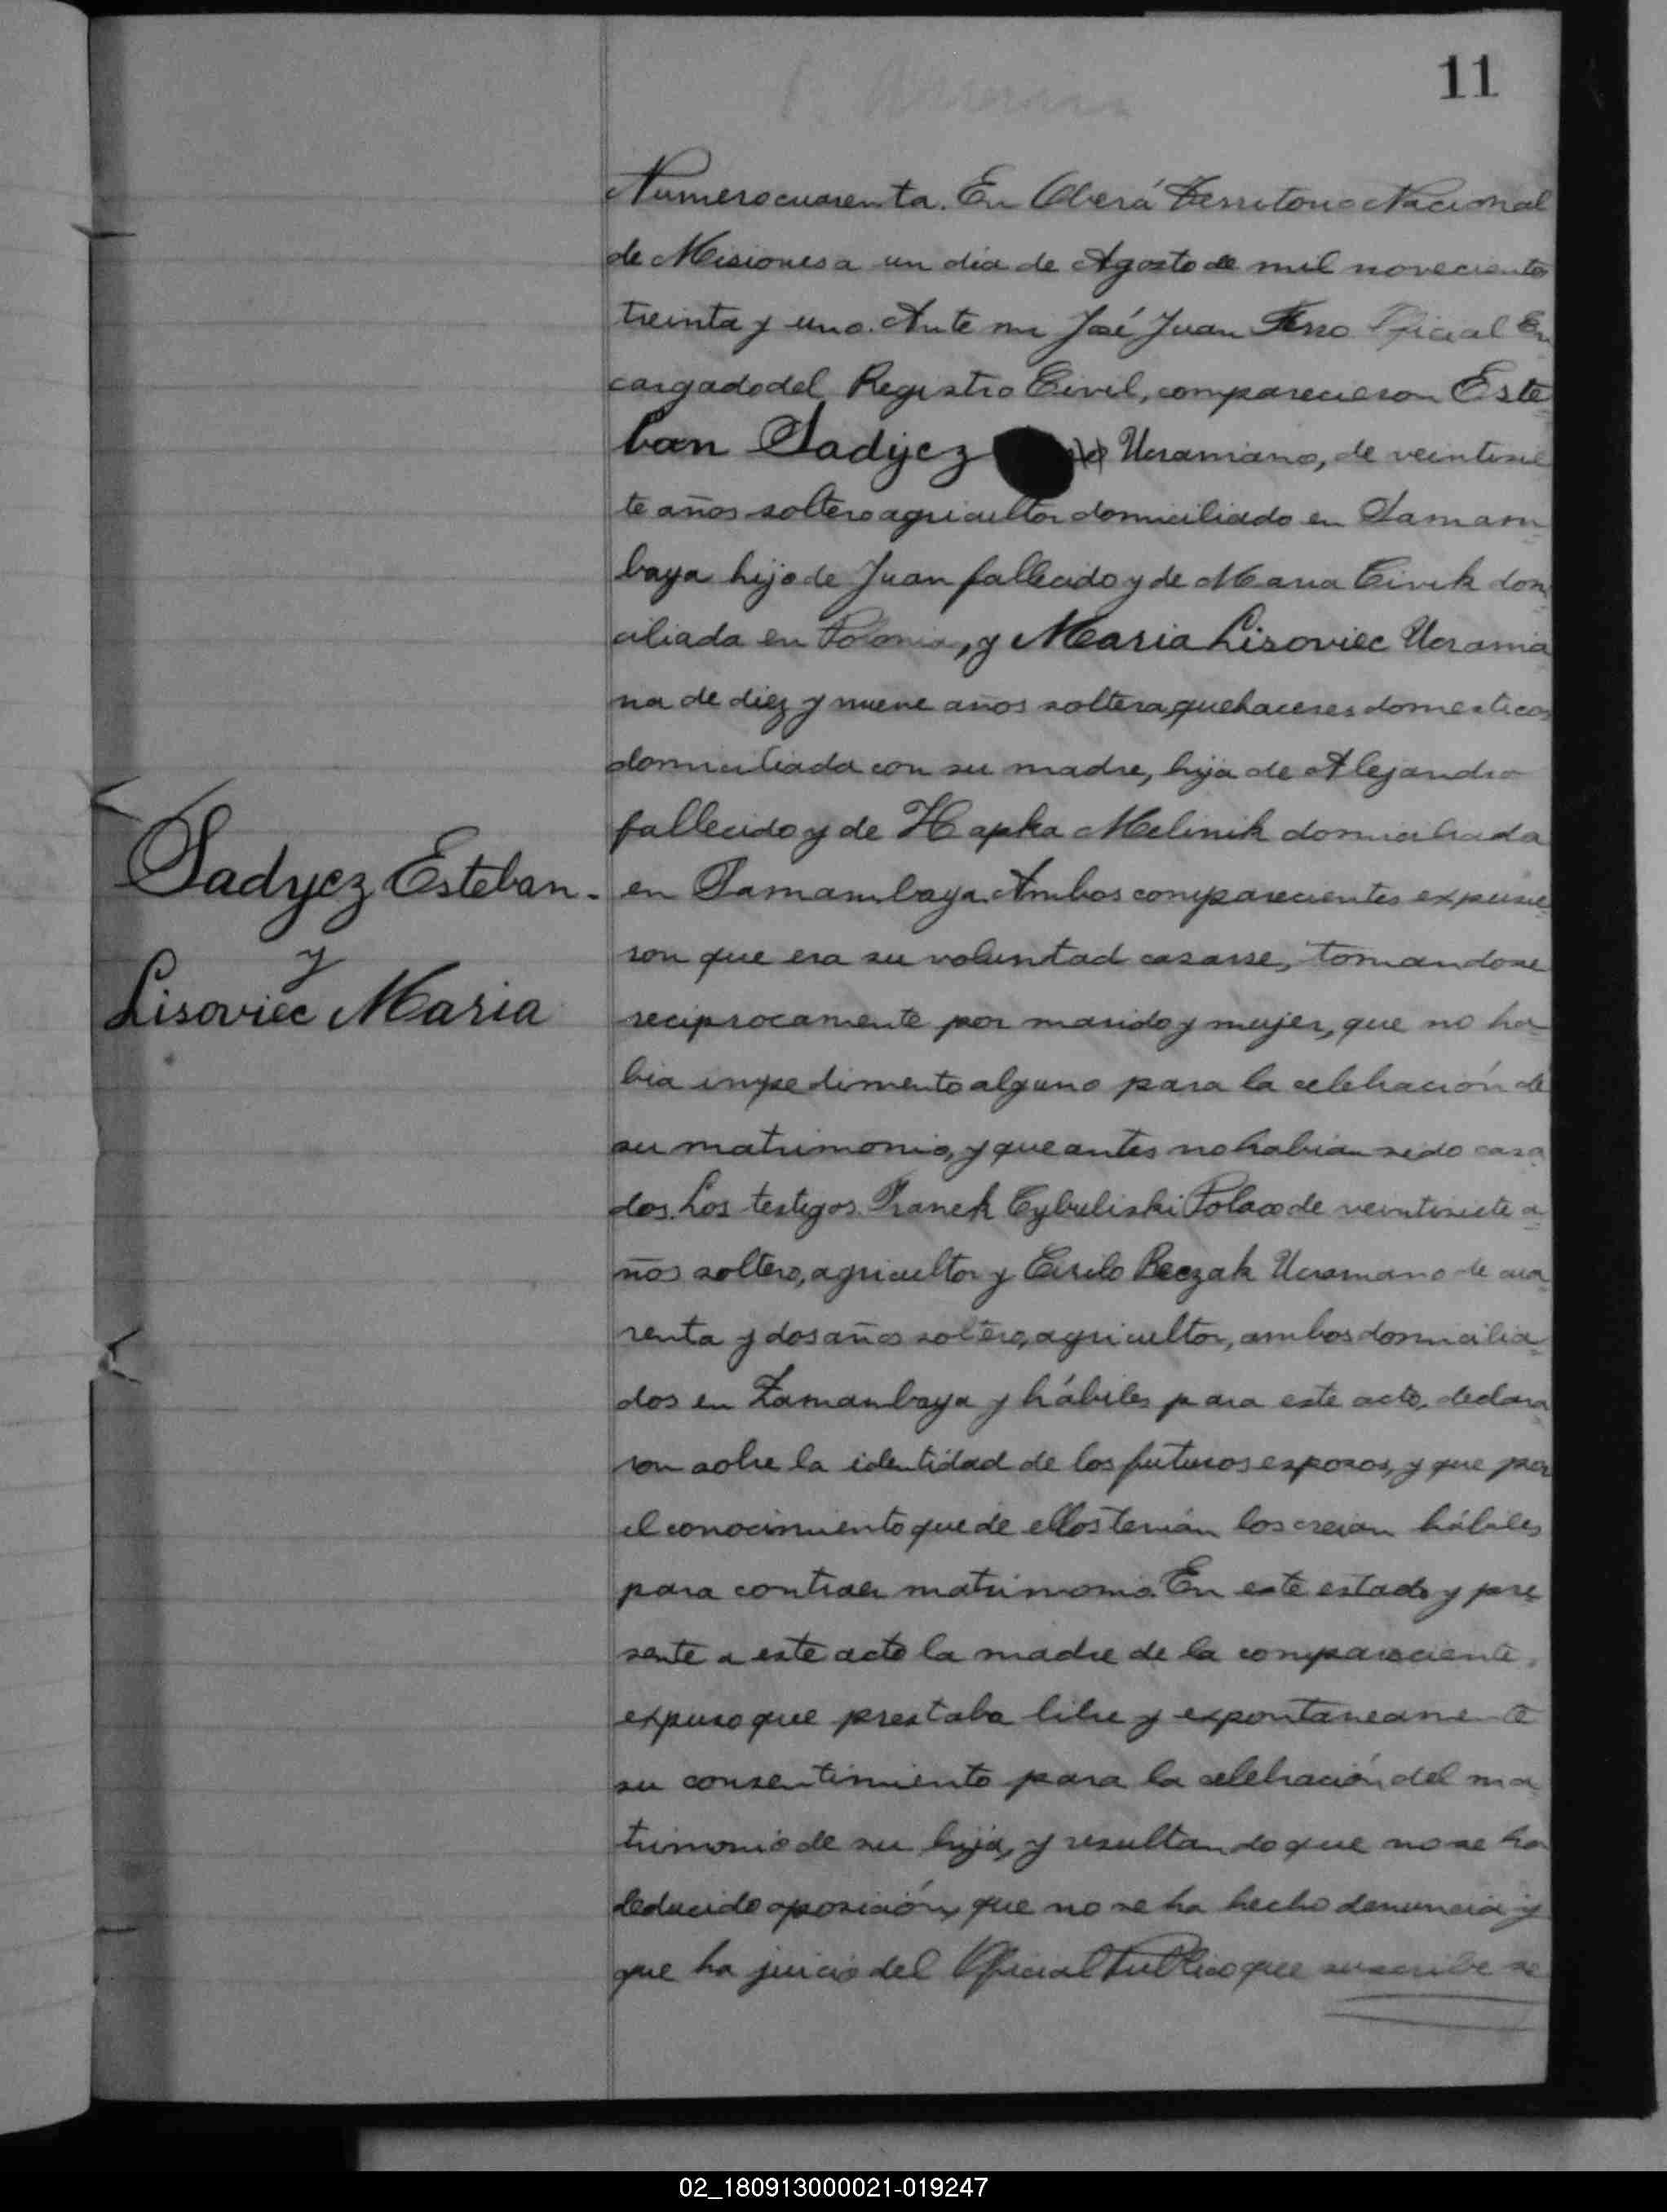 11
Numero cuarenta. En Oberá Territorio Nacional
de Misiones a un dia de Agosto de mil novecientos
treinta y uno. Ante mi José Juan Oficial En
cargado del Registro Civil, comparecieron Este
ban Sadycz Ucraniano, de veintisie
te años soltero agricultor domiciliado en Samam
baya hijo de Juan fallecido y de Maria Civik domi
ciliada en Polonia, y Maria Lisoviec Ucrania
na de diez y nueve años soltera, quehaceres domesticos
domiciliada con su madre, hija de Alejandro
fallecido y de Hapka Melinik domiciliada
Sadycz Esteban.
y
Lisoviec Maria
en Samambaya. Ambos comparecientes expusie
ron que era su voluntad casarse, tomandose
reciprocamente por marido y mujer, que no ha
bia impedimento alguno para la celebración de
su matrimonio, y que antes no habian sido casa
dos. Los testigos. Franek Cybuliski Polaco de veintisiete a
ños soltero, agricultor y Cirilo Reczak Ucraniano de cua
renta y dos años soltero, agricultor, ambos domicilia
dos en Zamambaya y hábiles para este acto, declara
ron sobre la identidad de los futuros esposos, y que por
el conocimiento que de ellos tenián los creian hábiles
para contraer matrimonio. En este estado y pre
sente a este acto la madre de la compareciente,
expuso que prestaba libre y expontaneamente
su consentimiento para la celebración del ma
trimonio de su hija, y resultando que no se ha
deducido oposición, que no se ha hecho denuncia y
que ha juicio del Oficial Publico que suscribe se
02_180913000021-019247